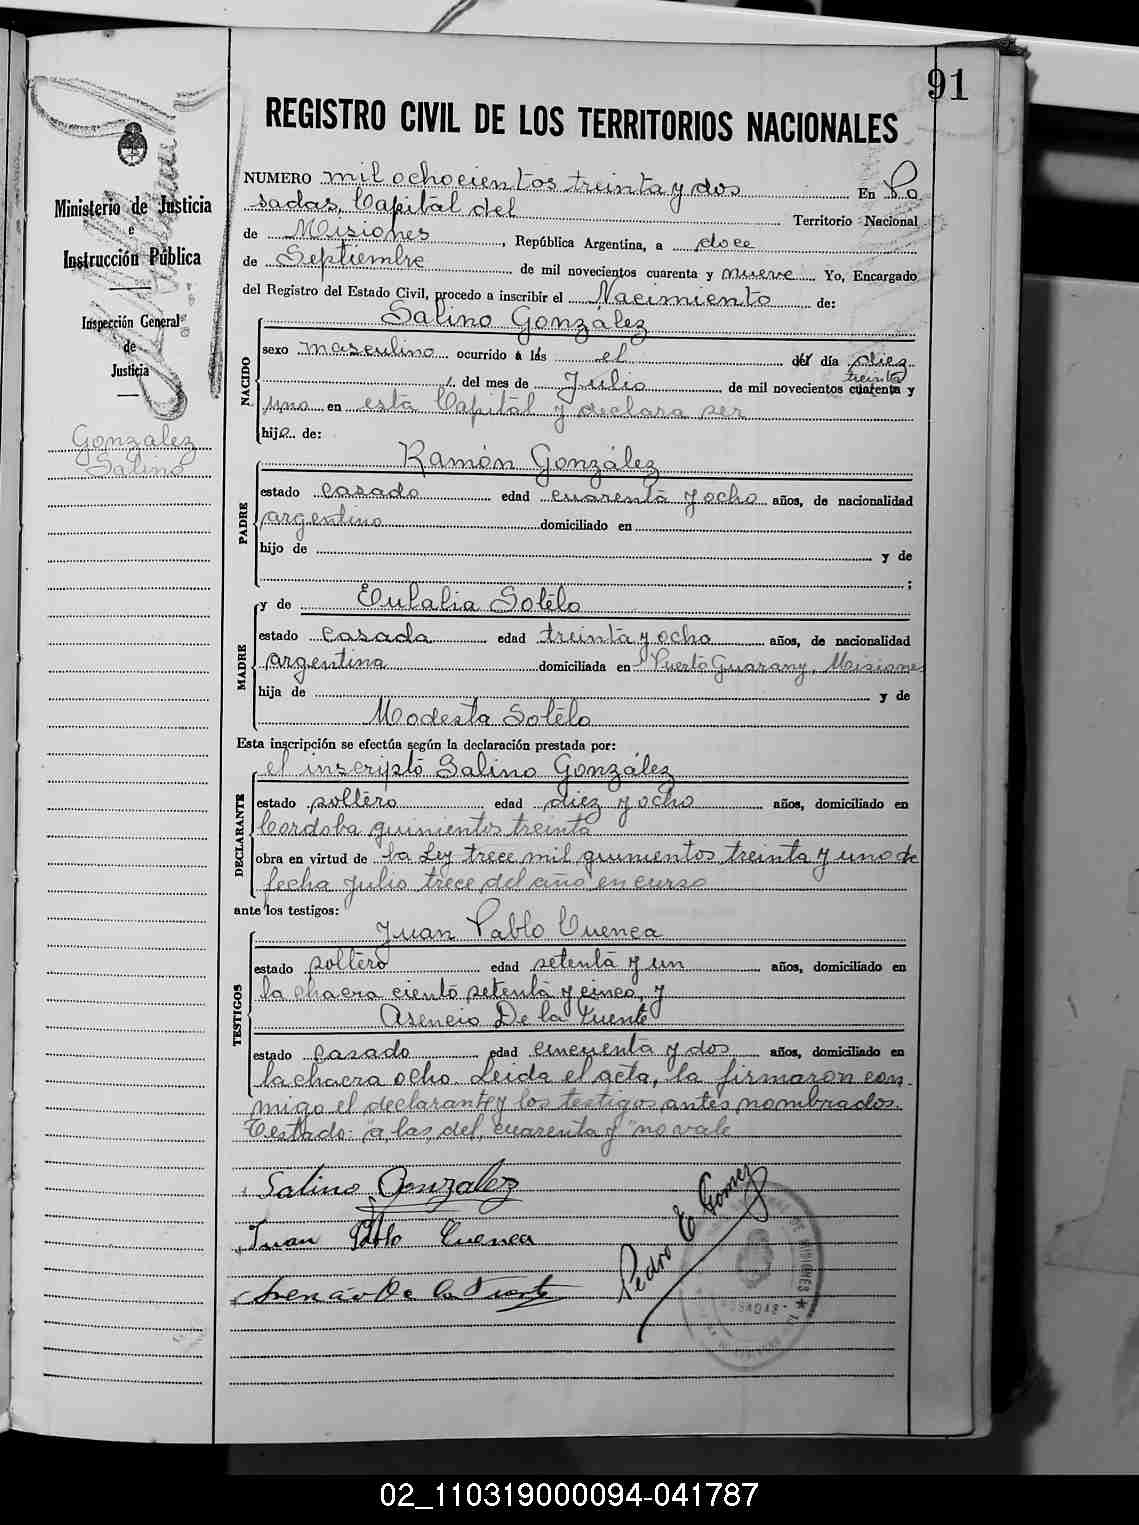 91
REGISTRO CIVIL DE LOS TERRITORIOS NACIONALES
Ministerio de Justicia
e
Instrucción Pública
Inspección General
de
Justicia
Gonzalez
Salino
NUMERO mil ochocientos treinta y dos En Po
sadas, Capital del Territorio Nacional
de Misiones, República Argentina, a doce
de Septiembre de mil novecientos cuarenta y nueve Yo, Encargado
del Registro del Estado Civil, procedo a inscribir el Nacimiento de:
NACIDO
Salino González
sexo masculino ocurrido á lás el del día diez
treinta
del mes de Julio de mil novecientos cuarenta y
uno en esta Capital y declara ser
hijo de:
PADRE
Ramón González
estado casado edad cuarenta y ocho años, de nacionalidad
argentino domiciliado en
hijo de y de
;
MADRE
y de Eulalia Sotelo
estado casada edad treinta y ocho años, de nacionalidad
argentina domiciliada en Puerto Guarany, Misiones
hija de y de
Modesta Sotelo
Esta inscripción se efectúa según la declaración prestada por:
DECLARANTE
el inscripto Salino González
estado soltero edad diez y ocho años, domiciliado en
Cordoba quinientos treinta
obra en virtud de la Ley trece mil quinientos treinta y uno de
fecha Julio trece del año en curso
ante los testigos:
TESTIGOS
Juan Pablo Cuenca
estado soltero edad setenta y un años, domiciliado en
la chacra ciento setenta y cinco, y
Asencio De la Fuente
estado casado edad cincuenta y dos años, domiciliado en
la chacra ocho. Leida el acta, la firmaron con
migo el declarante y los testigos antes nombrados.
Testado: "a las, del, cuarenta y" no vale
Salino Gonzalez
Juan Pablo Cuenca
Asencio De la Fuente
Pedro E Gomez
MISIONES
POSADAS
02_110319000094-041787